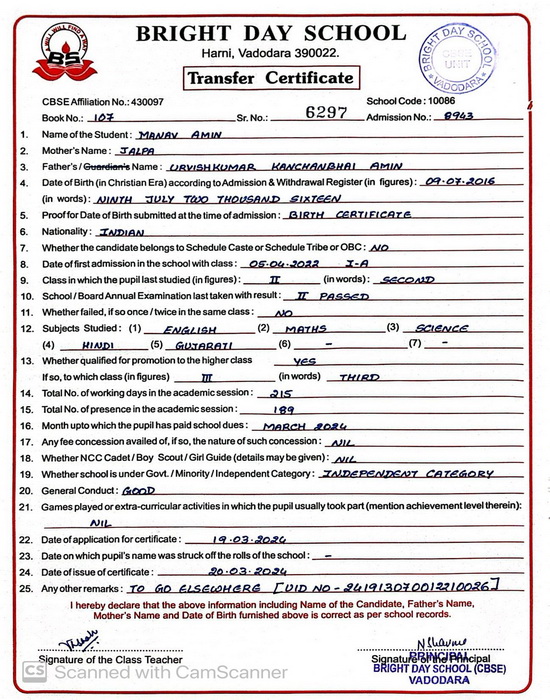 BRIGHT DAY SCHOOL
Harni, Vadodara 390022.
Transfer Certificate
BS
BRIGHT DAY SCHOOL
CBSE
UNIT
VADODARA
CBSE Affiliation No.: 430097 School Code : 10086
Book No.: 107 Sr. No.: 6297 Admission No.: 8943
1. Name of the Student : MANAV AMIN
2. Mother's Name : JALPA
3. Father's / Guardian's Name : URVISHKUMAR KANCHANBHAI AMIN
4. Date of Birth (in Christian Era) according to Admission & Withdrawal Register (in figures) : 09-07-2016
(in words) : NINTH JULY TWO THOUSAND SIXTEEN
5. Proof for Date of Birth submitted at the time of admission : BIRTH CERTIFICATE
6. Nationality : INDIAN
7. Whether the candidate belongs to Schedule Caste or Schedule Tribe or OBC : NO
8. Date of first admission in the school with class : 05-04-2022 I-A
9. Class in which the pupil last studied (in figures) : II (in words) : SECOND
10. School / Board Annual Examination last taken with result : II PASSED
11. Whether failed, if so once / twice in the same class : NO
12. Subjects Studied : (1) ENGLISH (2) MATHS (3) SCIENCE
(4) HINDI (5) GUJARATI (6) - (7) -
13. Whether qualified for promotion to the higher class YES
If so, to which class (in figures) III (in words) THIRD
14. Total No. of working days in the academic session : 215
15. Total No. of presence in the academic session : 189
16. Month upto which the pupil has paid school dues : MARCH 2024
17. Any fee concession availed of, if so, the nature of such concession : NIL
18. Whether NCC Cadet / Boy Scout / Girl Guide (details may be given) : NIL
19. Whether school is under Govt. / Minority / Independent Category : INDEPENDENT CATEGORY
20. General Conduct : GOOD
21. Games played or extra-curricular activities in which the pupil usually took part (mention achievement level therein) :
NIL
22. Date of application for certificate : 19.03.2024
23. Date on which pupil's name was struck off the rolls of the school : -
24. Date of issue of certificate : 20.03.2024
25. Any other remarks : TO GO ELSEWHERE [UID NO - 241913070012210026]
I hereby declare that the above information including Name of the Candidate, Father's Name,
Mother's Name and Date of Birth furnished above is correct as per school records.
Signature of the Class Teacher Signature of the Principal
PRINCIPAL
BRIGHT DAY SCHOOL (CBSE)
VADODARA
CS Scanned with CamScanner